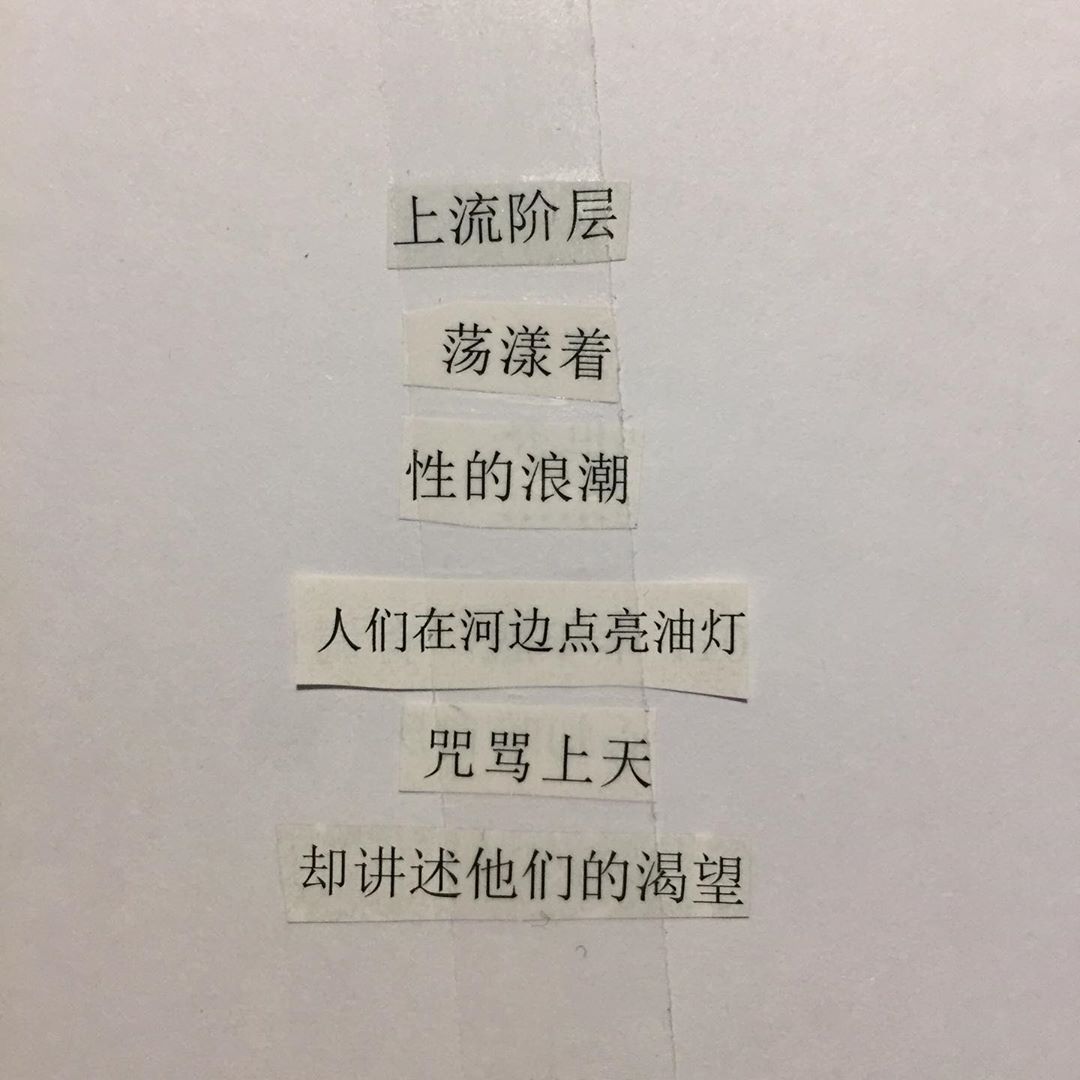 上流阶层
荡漾着
性的浪潮
人们在河边点亮油灯
咒骂上天
却讲述他们的渴望